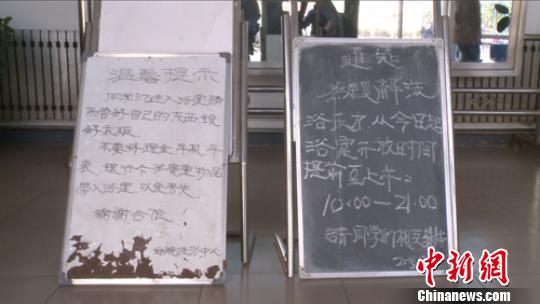 温馨提示
同学们进入浴室请
保管好自己的东西,锁
好衣柜.
不要将现金、手机、手
表、银行卡等贵重物品
带入浴室,以免丢失.
谢谢合作!
通知
为缓解洗
浴压力,从今日起
浴室开放时间
提前至上午:
10:00—21:00
请同学们相互转告
中新网
Chinanews.com